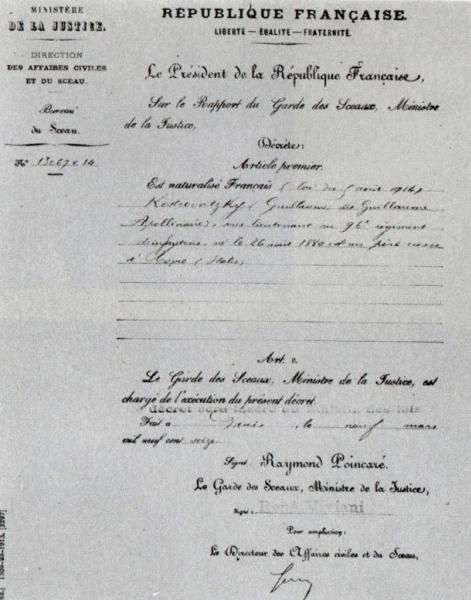 MINISTÈRE
DE LA JUSTICE.
DIRECTION
DES AFFAIRES CIVILES
ET DU SCEAU.
Bureau
du Sceau.
N° 13067 x 14
RÉPUBLIQUE FRANÇAISE.
LIBERTÉ — ÉGALITÉ — FRATERNITÉ.
Le Président de la République Française,
Sur le Rapport du Garde des Sceaux, Ministre
de la Justice,
Décrète:
Article premier.
Est naturalisé Français (loi du 5 août 1914)
Kostrowitzky (Guillaume dit Guillaume
Apollinaire), sous lieutenant au 96e régiment
d'infanterie, né le 26 août 1880 d'un père russe
à Rome (Italie)
Art. 2.
Le Garde des Sceaux, Ministre de la Justice, est
chargé de l'exécution du présent décret.
décret sera inséré au Bulletin des lois
Fait à Paris, le neuf mars
mil neuf cent seize
Signé: Raymond Poincaré.
Le Garde des Sceaux, Ministre de la Justice,
Signé: René Viviani
Pour ampliation:
Le Directeur des Affaires civiles et du Sceau,